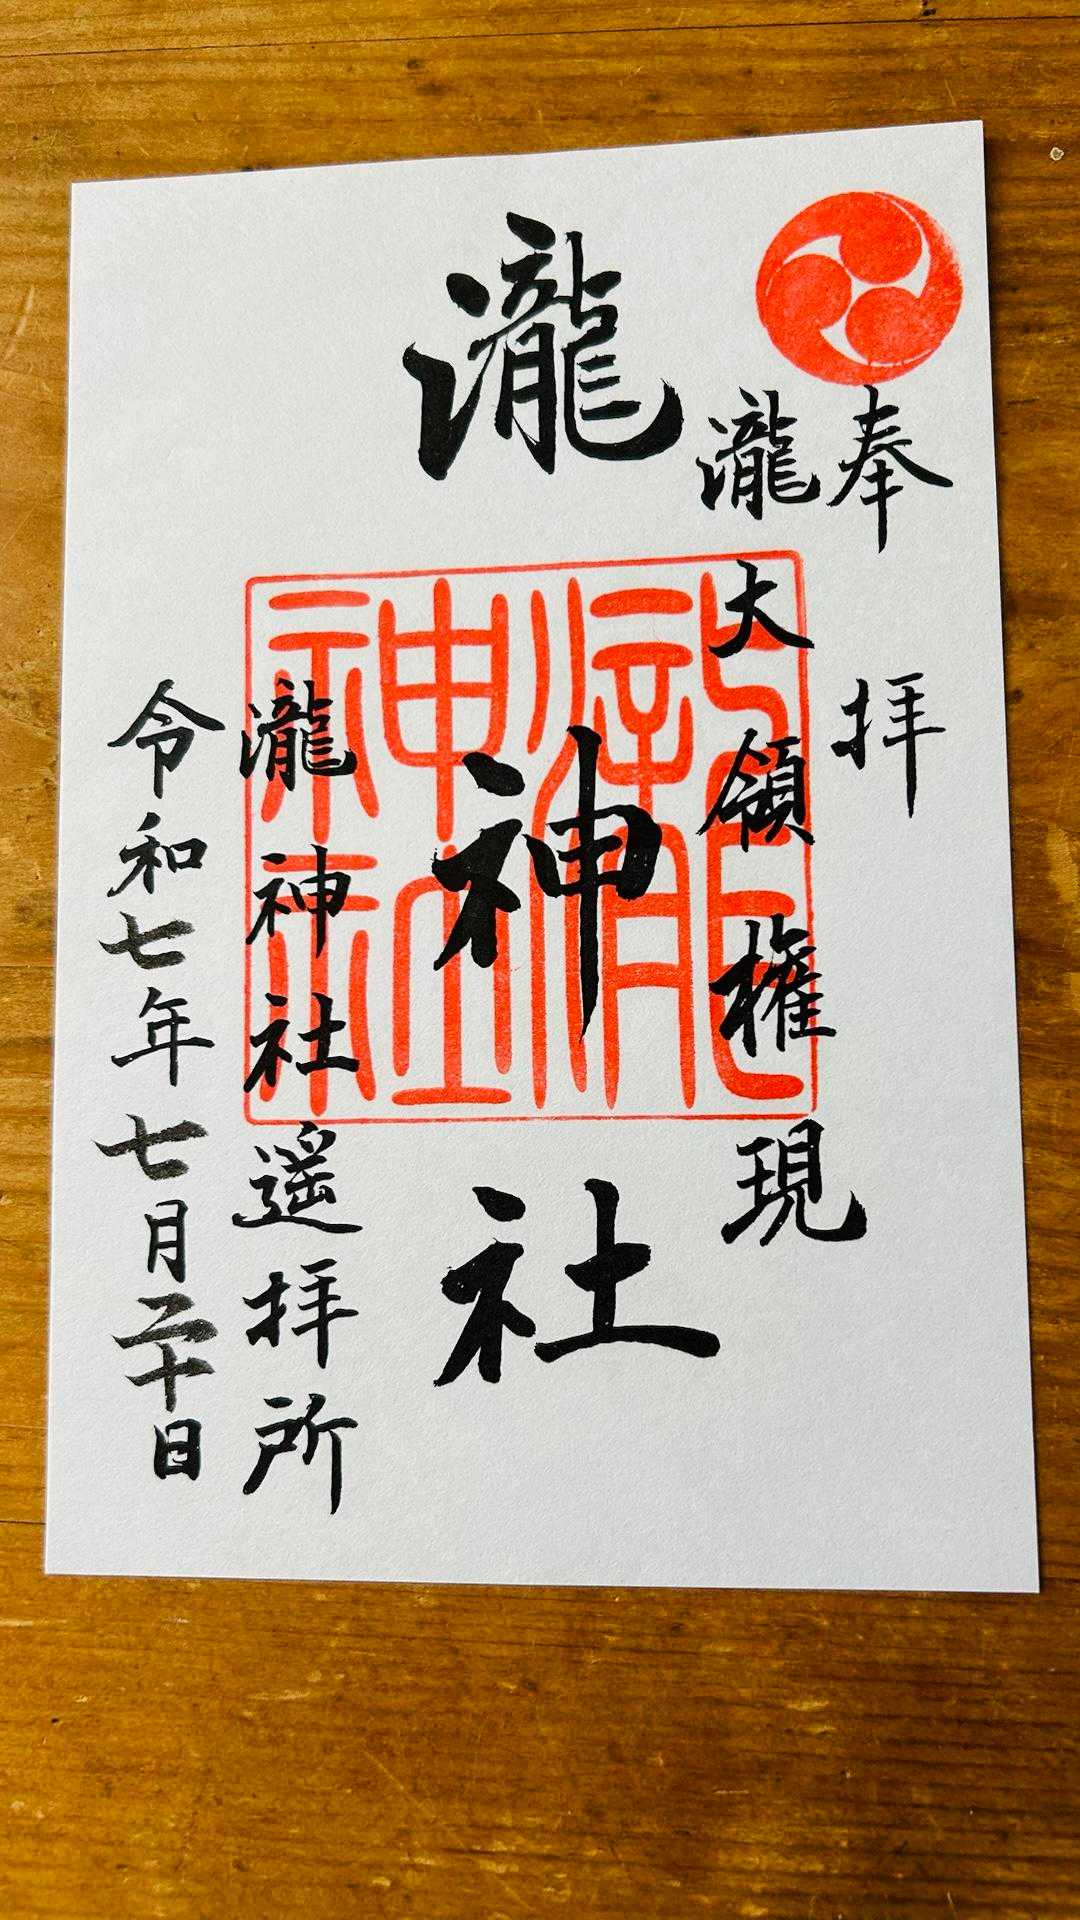 奉拝
瀧大領権現
瀧神社
瀧神社
瀧神社遥拝所
令和七年七月二十日